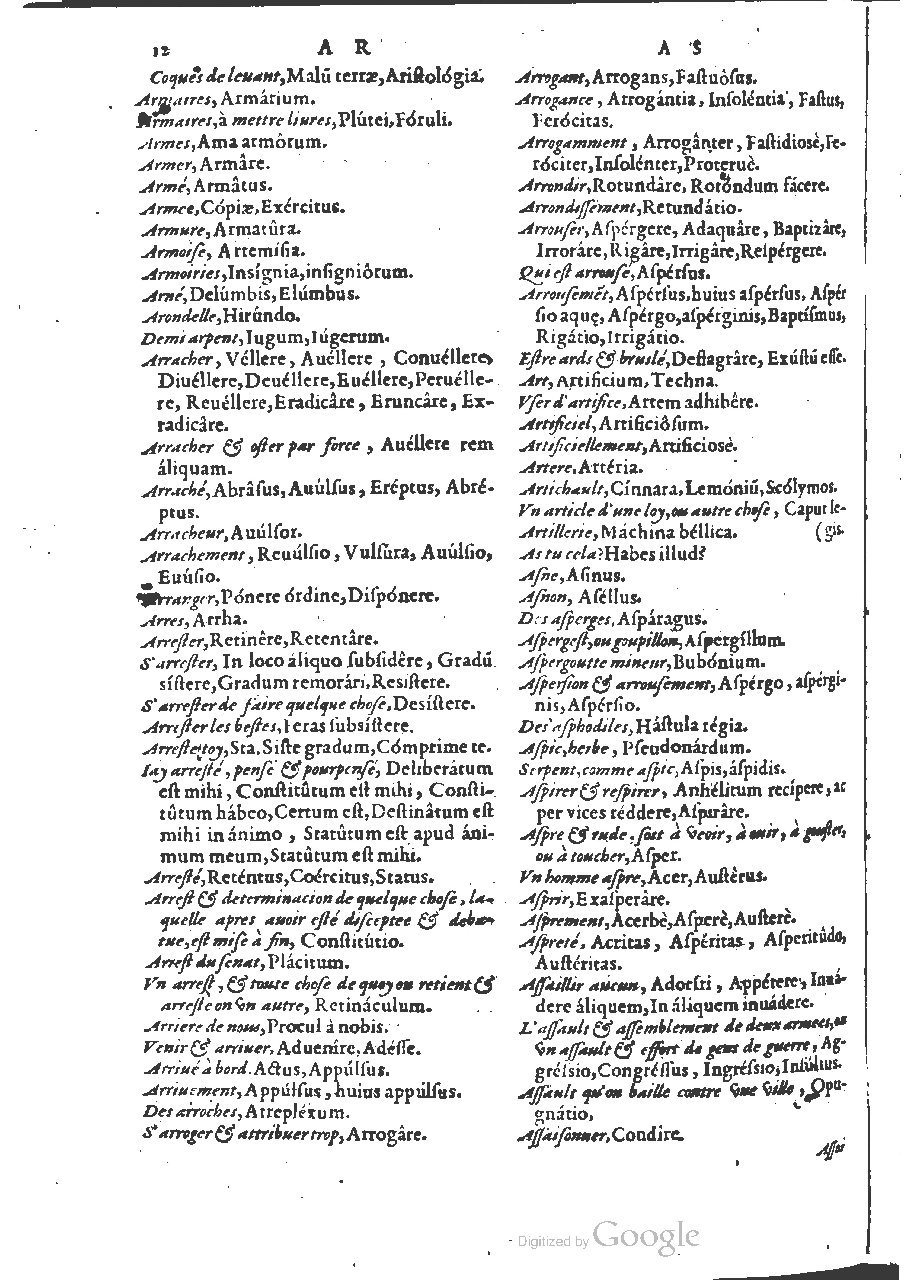 12 A R A S
Coques de leuant, Malũ terræ, Aristológia.
Armaires, Armárium.
Armaires, à mettre liures, Plútei, Fóruli.
Armes, Ama armôrum.
Armer, Armâre.
Armé, Armâtus.
Armee, Cópiæ, Exércitus.
Armure, Armatûra.
Armoiſe, Artemiſia.
Armoiries, Inſígnia, inſigniôrum.
Arné, Delúmbis, Elúmbus.
Arondelle, Hirúndo.
Demi arpent, Iugum, Iúgerum.
Arracher, Véllere, Auéllere, Conuéllere,
Diuéllere, Deuéllere, Euéllere, Peruélle-
re, Reuéllere, Eradicâre, Eruncâre, Ex-
radicâre.
Arracher & oſter par force, Auéllere rem
áliquam.
Arraché, Abrâſus, Auúlſus, Eréptus, Abré-
ptus.
Arracheur, Auúlſor.
Arrachement, Reuúlſio, Vulſúra, Auúlſio,
Euúſio.
Arranger, Pónere órdine, Diſpónere.
Arres, Arrha.
Arreſter, Retinêre, Retentâre.
S'arreſter, In loco áliquo ſubſidère, Gradũ
síſtere, Gradum remorári, Reſiſtere.
S'arreſter de faire quelque choſe, Desíſtere.
Arreſter les beſtes, Feras ſubsíſtere.
Arreſte toy, Sta, Siſte gradum, Cómprime te.
Iay arreſté, penſé & pourpenſé, Deliberâtum
eſt mihi, Conſtitûtum eſt mihi, Conſti-
tûtum hábeo, Certum eſt, Deſtinâtum eſt
mihi in ánimo, Statûtum eſt apud áni-
mum meum, Statûtum eſt mihi.
Arreſté, Reténtus, Coércitus, Status.
Arreſt & determinacion de quelque choſe, la-
quelle apres auoir eſté diſceptee & deba-
tue, eſt miſe à fin, Conſtitútio.
Arreſt du ſenat, Plácitum.
Vn arreſt, & toute choſe de quoy on retient &
arreſte on vn autre, Retináculum.
Arriere de nous, Procul à nobis.
Venir & arriuer, Aduenîre, Adéſſe.
Arriué à bord. Actus, Appúlſus.
Arriuement, Appúlſus, huius appúlſus.
Des arroches, Atrepléxum.
S'arroger & attribuer trop, Arrogâre.
Arrogant, Arrogans, Faſtuôſus.
Arrogance, Arrogántia, Inſoléntia, Faſtus,
Ferócitas.
Arrogamment, Arrogânter, Faſtidiosè, Fe-
róciter, Inſolénter, Proteruè.
Arrondir, Rotundâre, Rotóndum fácere.
Arrondiſſement, Retundátio.
Arrouſer, Aſpérgere, Adaquâre, Baptizâre,
Irrorâre, Rigâre, Irrigâre, Reſpérgere.
Qui eſt arrouſé, Aſpérſus.
Arrouſemẽt, Aſpérſus, huius aſpérſus, Aſpér
ſio aquę, Aſpérgo, aſpérginis, Baptíſmus,
Rigátio, Irrigátio.
Eſtre ards & bruslé, Deflagrâre, Exúſtũ eſſe.
Art, Artificium, Techna.
Vſer d'artifice, Artem adhibêre.
Artificiel, Artificiôſum.
Artificiellement, Artificiosè.
Artere, Artéria.
Artichault, Cínnara, Lemóniũ, Scólymos.
Vn article d'une loy, ou autre choſe, Caput le-
Artillerie, Máchina béllica. (gis.
As tu cela? Habes illud?
Aſne, Aſinus.
Aſnon, Aſéllus.
Des aſperges, Aſpáragus.
Aſpergeſt, ou goupillon, Aſpergíllum.
Aſpergoutte mineur, Bubónium.
Aſperſion & arrouſement, Aſpérgo, aſpérgi-
nis, Aſpérſio.
Des aſphodiles, Háſtula régia.
Aſpic, herbe, Pſeudonárdum.
Serpent, comme aſpic, Aſpis, áſpidis.
Aſpirer & reſpirer, Anhélitum recípere, ac
per vices réddere, Aſpirâre.
Aſpre & rude, ſoit à veoir, à ouir, à gouſter,
ou à toucher, Aſper.
Vn homme aſpre, Acer, Auſtêrus.
Aſprir, Exaſperâre.
Aſprement, Acerbè, Aſperè, Auſterè.
Aſpreté, Acritas, Aſpéritas, Aſperitûdo,
Auſtéritas.
Aſſaillir aucun, Adoríri, Appétere, Inuá-
dere áliquem, In áliquem inuádere.
L'aſſault & aſſemblement de deux armees, ou
vn aſſault & effort de gens de guerre, Ag-
gréſsio, Congréſſus, Ingréſsio, Inſúltus.
Aſſault qu'on baille contre vne ville, Opu-
gnátio,
Aſſaiſonner, Condîre.
Aſſai
Digitized by Google